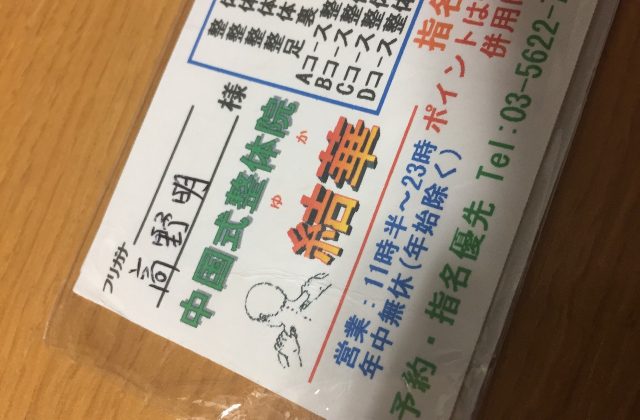 フリガナ
高野明 様
中国式整体院
ゆ か
結華
営業：11時半～23時
年中無休（年始除く）
予約・指名優先 Tel：03-5622-
整体
整体
整体
整体
足裏
Aコース
Bコース
Cコース
Dコース
整体
整体
整体
整体
指名
ポイントは
併用